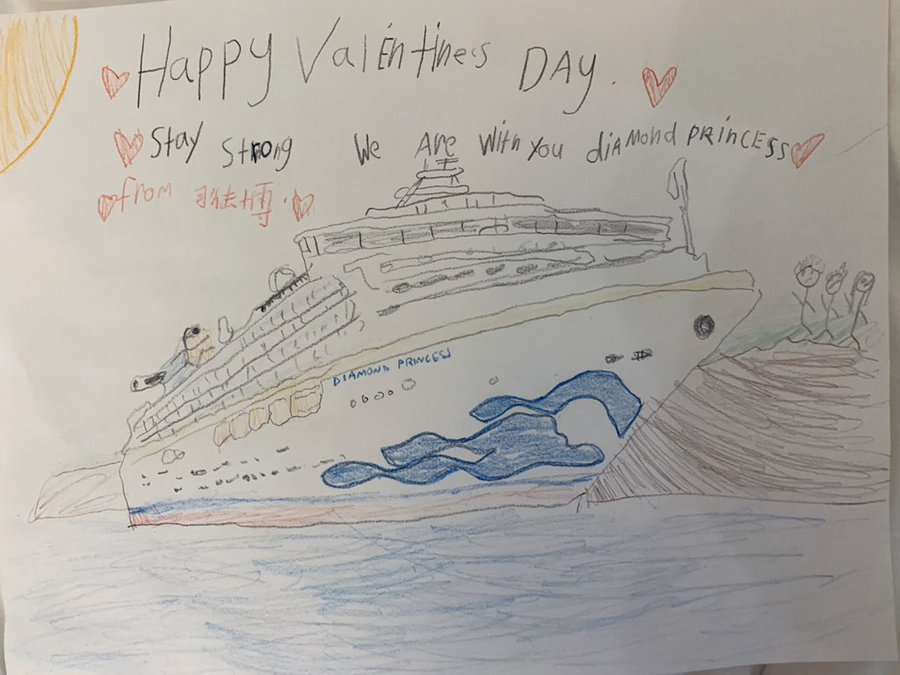 Happy Valentine's DAY.
Stay strong We Are With You diamond PRINCESS
from
DIAMOND PRINCESS